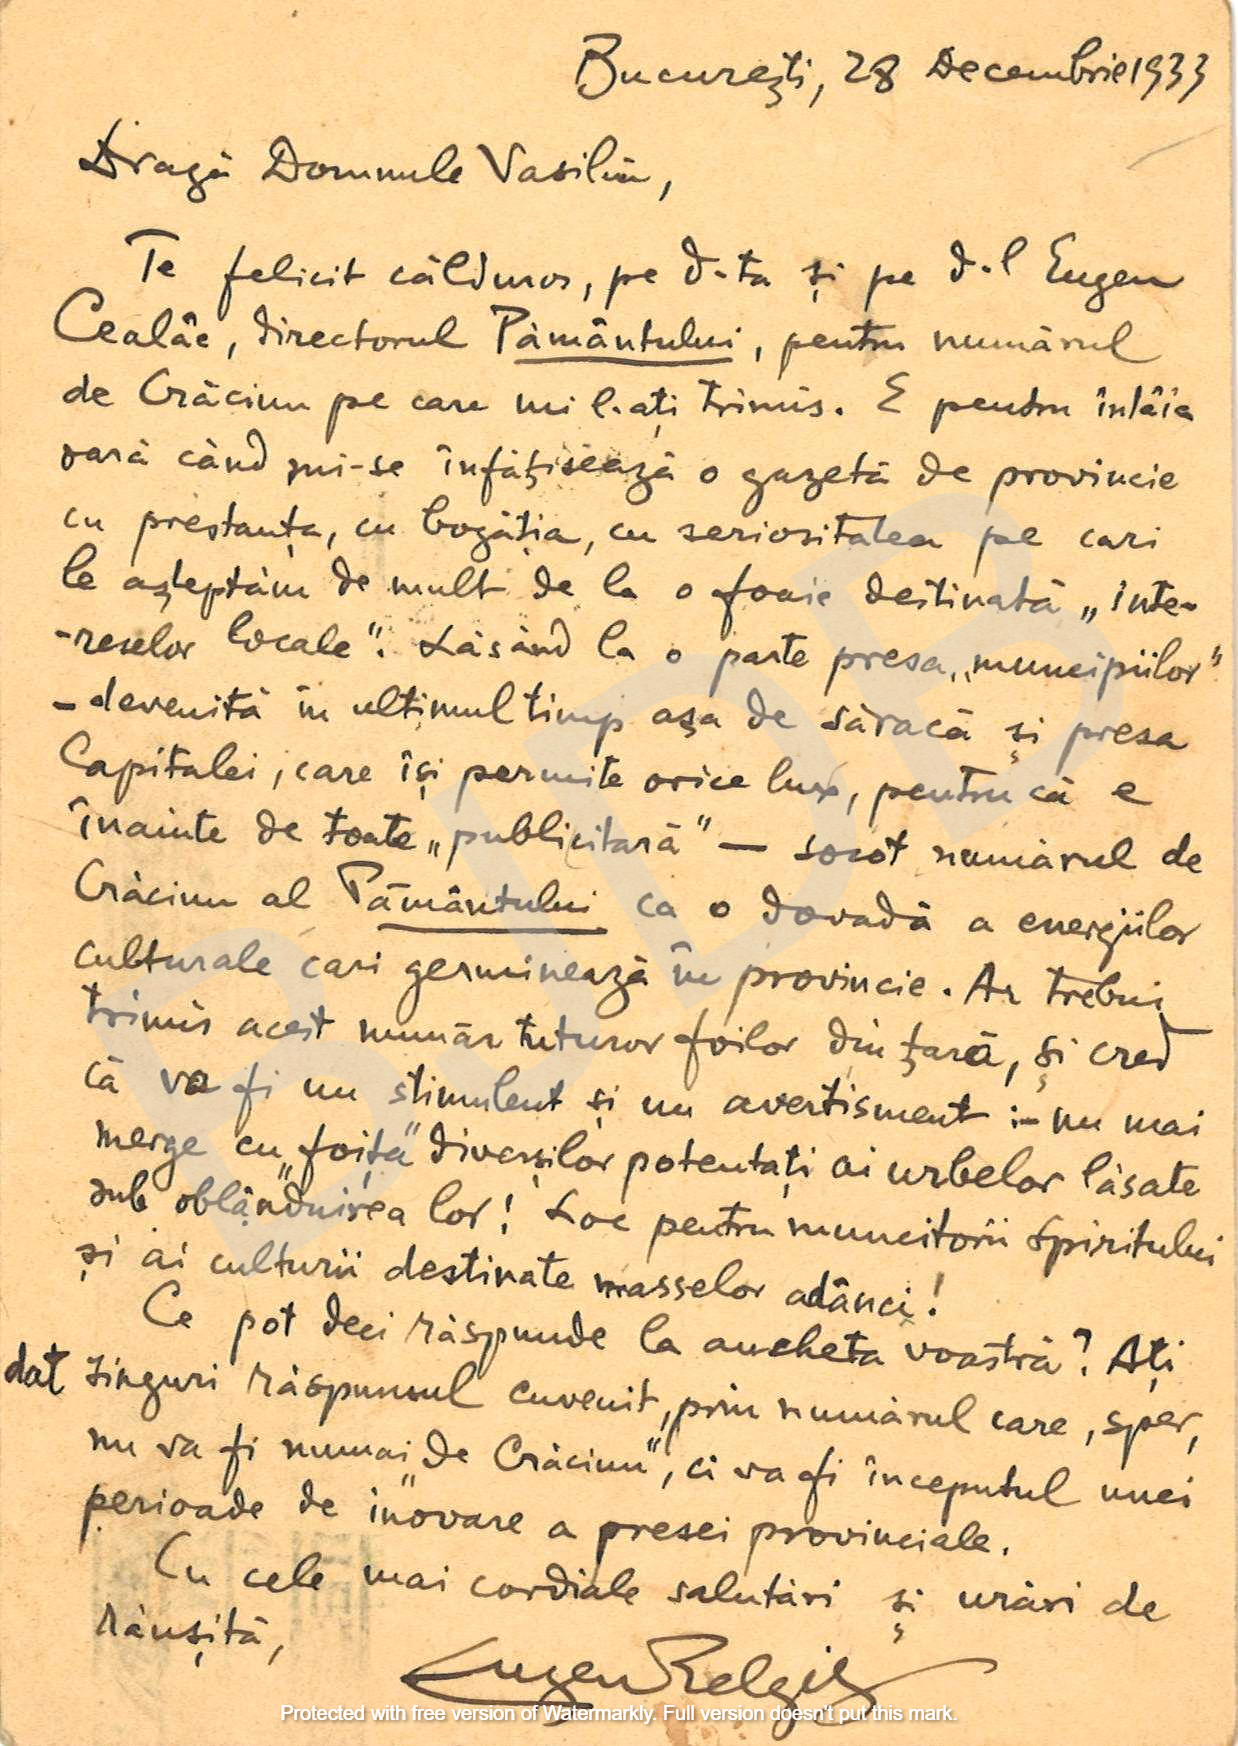 București, 28 Decembrie 1933
Dragă Domnule Vasiliu,
Te felicit călduros, pe d-ta și pe d-l Eugen
Cealâc, directorul Pământului, pentru numărul
de Crăciun pe care mi l-ați trimis. E pentru întâia
oară când mi-se înfățișează o gazetă de provincie
cu prestanța, cu bogăția, cu seriositatea pe cari
le așteptăm de mult de la o foaie destinată „inte-
-reselor locale". Lăsând la o parte presa „municipiilor"
– devenită în ultimul timp așa de săracă și presa
Capitalei, care își permite orice lux, pentrucă e
înainte de toate „publicitară" — socot numărul de
Crăciun al Pământului ca o dovadă a energiilor
culturale cari germinează în provincie. Ar trebui
trimis acest număr tuturor foilor din țară, și cred
că va fi un stimulent și un avertisment :– nu mai
merge cu „foița" diverșilor potentați ai urbelor lăsate
sub oblânduirea lor! Loc pentru muncitorii spiritului
și ai culturii destinate masselor adânci!
Ce pot deci răspunde la ancheta voastră? Ați
dat singuri răspunsul cuvenit, prin numărul care, sper,
nu va fi numai „de Crăciun", ci va fi începutul unei
perioade de inovare a presei provinciale.
Cu cele mai cordiale salutări și urări de
răușită,
Eugen Relgis
Protected with free version of Watermarkly. Full version doesn't put this mark.